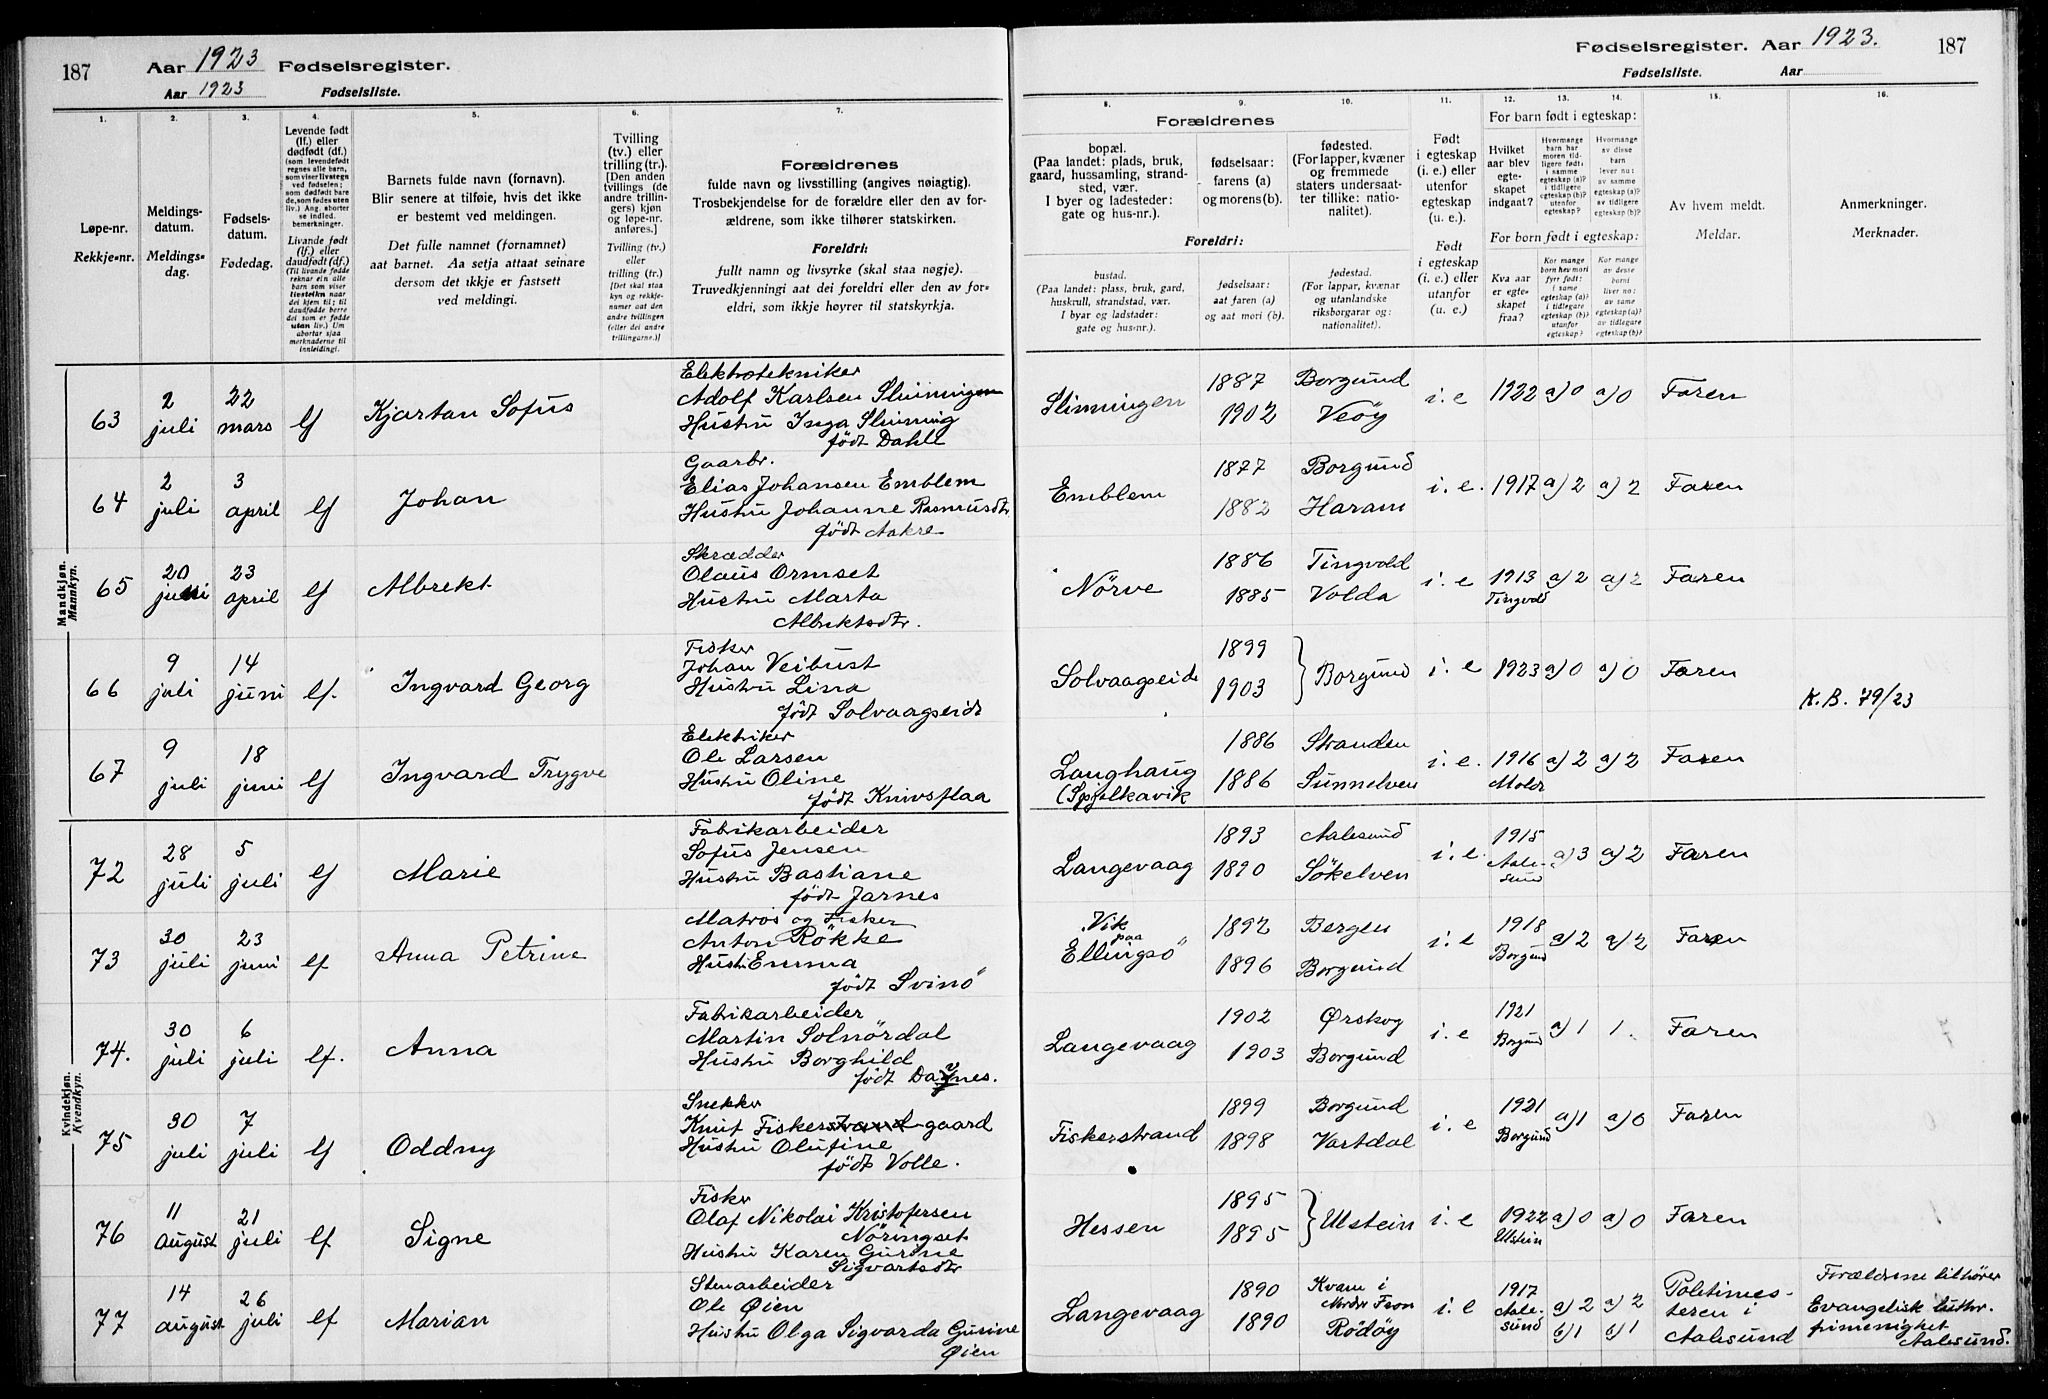 187
Aar 1923 Fødselsregister.
Aar 1923 Fødselsliste.
1.
Løpe-nr.
Rekkje-nr.
2.
Meldings-
datum.
Meldings-
dag.
3.
Fødsels-
datum.
Fødedag.
4.
Levende født
(lf.) eller
dødfødt (df.)
(som levendefødt
regnes alle barn,
som viser livstegn
ved fødselen;
som dødfødt bare
de, som fødes uten
liv.) Ang. aborter
se indled.
bemerkninger.
Livande født
(lf.) eller
daudfødt (df.)
(Til livande fødde
reknar ein alle
barn som viser
livsteikn naar
dei kjem til; til
daudfødde berre
dei som er fødde
utan liv.) Um
abortar sjaa
merknaderne til
innleidingi.
5.
Barnets fulde navn (fornavn).
Blir senere at tilføie, hvis det ikke
er bestemt ved meldingen.
Det fulle namnet (fornamnet)
aat barnet. Aa setja attaat seinare
dersom det ikkje er fastsett
ved meldingi.
6.
Tvilling
(tv.) eller
trilling (tr.).
[Den anden
tvillings (de
andre trillin-
gers) kjøn
og løpe-nr.
anføres.]
Tvilling (tv.)
eller
trilling (tr.)
[Det skal staa
kyn og rekkje-
numer aat den
andre tvillingen
(eller dei andre
trillingarne.)]
7.
Forældrenes
fulde navn og livsstilling (angives nøiagtig).
Trosbekjendelse for de forældre eller den av for-
ældrene, som ikke tilhører statskirken.
Foreldri:
fullt namn og livsyrke (skal staa nøgje).
Truvedkjenningi aat dei foreldri eller den av for-
eldri, som ikkje høyrer til statskyrkja.
Mandkjøn.
Mannkyn.
63 2 juli 22 mars lf Kjartan Sofus
Elektrotekniker
Adolf Karlsen Slinningen
Hustru Inga Slinning
født Dahle
64 2 juli 3 april lf Johan
Gaarbr.
Elias Johansen Emblem
Hustru Johanne Rasmusdtr
født Aakre
65 20 juni 23 april lf Albrekt
Skrædder
Olaus Ormset
Hustru Marta
Albrektsdtr.
66 9 juli 14 juni lf. Ingvard Georg
Fisker
Johan Veibust
Hustru Lina
født Solvaagseide
67 9 juli 18 juni lf Ingvard Trygve
Elektriker
Ole Larsen
Hustru Oline
født Knivsflaa
Kvindekjøn.
Kvendkyn.
72 28 juli 5 juli lf Marie
Fabrikarbeider
Sofus Jensen
Hustru Bastiane
født Jarnes
73 30 juli 23 juni lf Anna Petrine
Matros og Fisker
Anton Røkke
Hustr Emma
født Svinö
74. 30 juli 6 juli lf. Anna
Fabrikarbeider
Martin Solnördal
Hustru Borghild
født
75 30 juli 7 juli lf Oddny
Snekker
Knut Fiskerstrand gaard
Hustru Olufine
født Volle.
76 11 august 21 juli lf Signe
Fisker
Olaf Nikolai Kristofersen
Nöringset
Hustru Karen Gurine
Sigvartsdtr
77 14 august 26 juli lf Marian
Stenarbeider
Ole Øien
Hustru Olga Sigvarda Gurine
Øien
Fødselsregister. Aar 1923. 187
Fødselsliste. Aar
8.
Forældrenes
bopæl.
(Paa landet: plads, bruk,
gaard, hussamling, strand-
sted, vær.
I byer og ladesteder:
gate og hus-nr.).
Foreldri:
bustad.
(Paa landet: plass, bruk, gard,
huskrull, strandstad, vær.
I byar og ladstader:
gate og hus-nr.).
9.
fødselsaar:
farens (a)
og morens (b).
fødselsaar:
aat faren (a)
og aat mori (b).
10.
fødested.
(For lapper, kvæner
og fremmede
staters undersaat-
ter tillike: natio-
nalitet).
fødestad.
(For lappar, kvænar
og utanlandske
riksborgarar og:
nationalitet).
11.
Født
i egteskap
(i. e.) eller
utenfor
egteskap
(u. e.).
Født
i egteskap
(i. e.) eller
utanfor
(u. e.)
For barn født i egteskap:
12.
Hvilket
aar blev
egte-
skapet
indgaat?
13.
Hvormange
barn har
moren tid-
ligere født:
i samme
egteskap (a)?
i tidligere
egteskap (b)?
utenfor
egteskap?
14.
Hvormange
av disse
barn
lever nu:
av samme
egteskap (a)?
av tidligere
egteskap (b)?
For born født i egteskap:
Kva aar
er egte-
skapet
fraa?
Kor mange
born hev mori
fyrr født:
i same
egteskap (a)?
i tidlegare
egteskap (b)?
utanfor
egteskap?
Kor mange
av desse
borni
liver no:
av same
egteskap (a)?
av tidlegare
egteskap (b)?
15.
Av hvem meldt.
Meldar.
16.
Anmerkninger.
Merknader.
Slinningen 1887 Borgund i. e 1922 a) 0 a) 0 Faren
1902 Veöy
Emblem 1877 Borgund i. e. 1917 a) 2 a) 2 Faren
1882 Haram
Nörve 1886 Tingvold i. e 1913 a) 2 a) 2 Faren
1885 Volda Tingvold
Solvaagseid 1899 Borgund i. e 1923 a) 0 a) 0 Faren
1903
K.B. 79/23
Langhaug 1886 Stranden i. e. 1916 a) 2 a) 2 Faren
(Spjelkavik 1886 Sunnelven Molde
Langevaag 1893 Aalesund i. e. 1915 a) 3 a) 2 Faren
1890 Sökelven Aalesund
Vik paa Ellingsö 1892 Bergen i. e 1918 a) 2 a) 2 Faren
1896 Borgund Borgund
Langevaag 1902 Ørskog i. e 1921 a) 1 1. Faren
1903 Borgund Borgund
Fiskerstrand 1899 Borgund i. e 1921 a) 1 a) 0 Faren
1898 Vartdal Borgund
Hessen 1895 Ulstein i. e 1922 a) 0 a) 0 Faren
1895 Ulstein
Langevaag 1890 Kvam i Nordre Fron i. e 1917 a) 2 a) 2 Politimes-
1890 Rödöy Aalesund b) 1 b) 1 teren i Aalesund
Forældrene tilhører
Evangelisk luthr.
frimenighet
Aalesund.